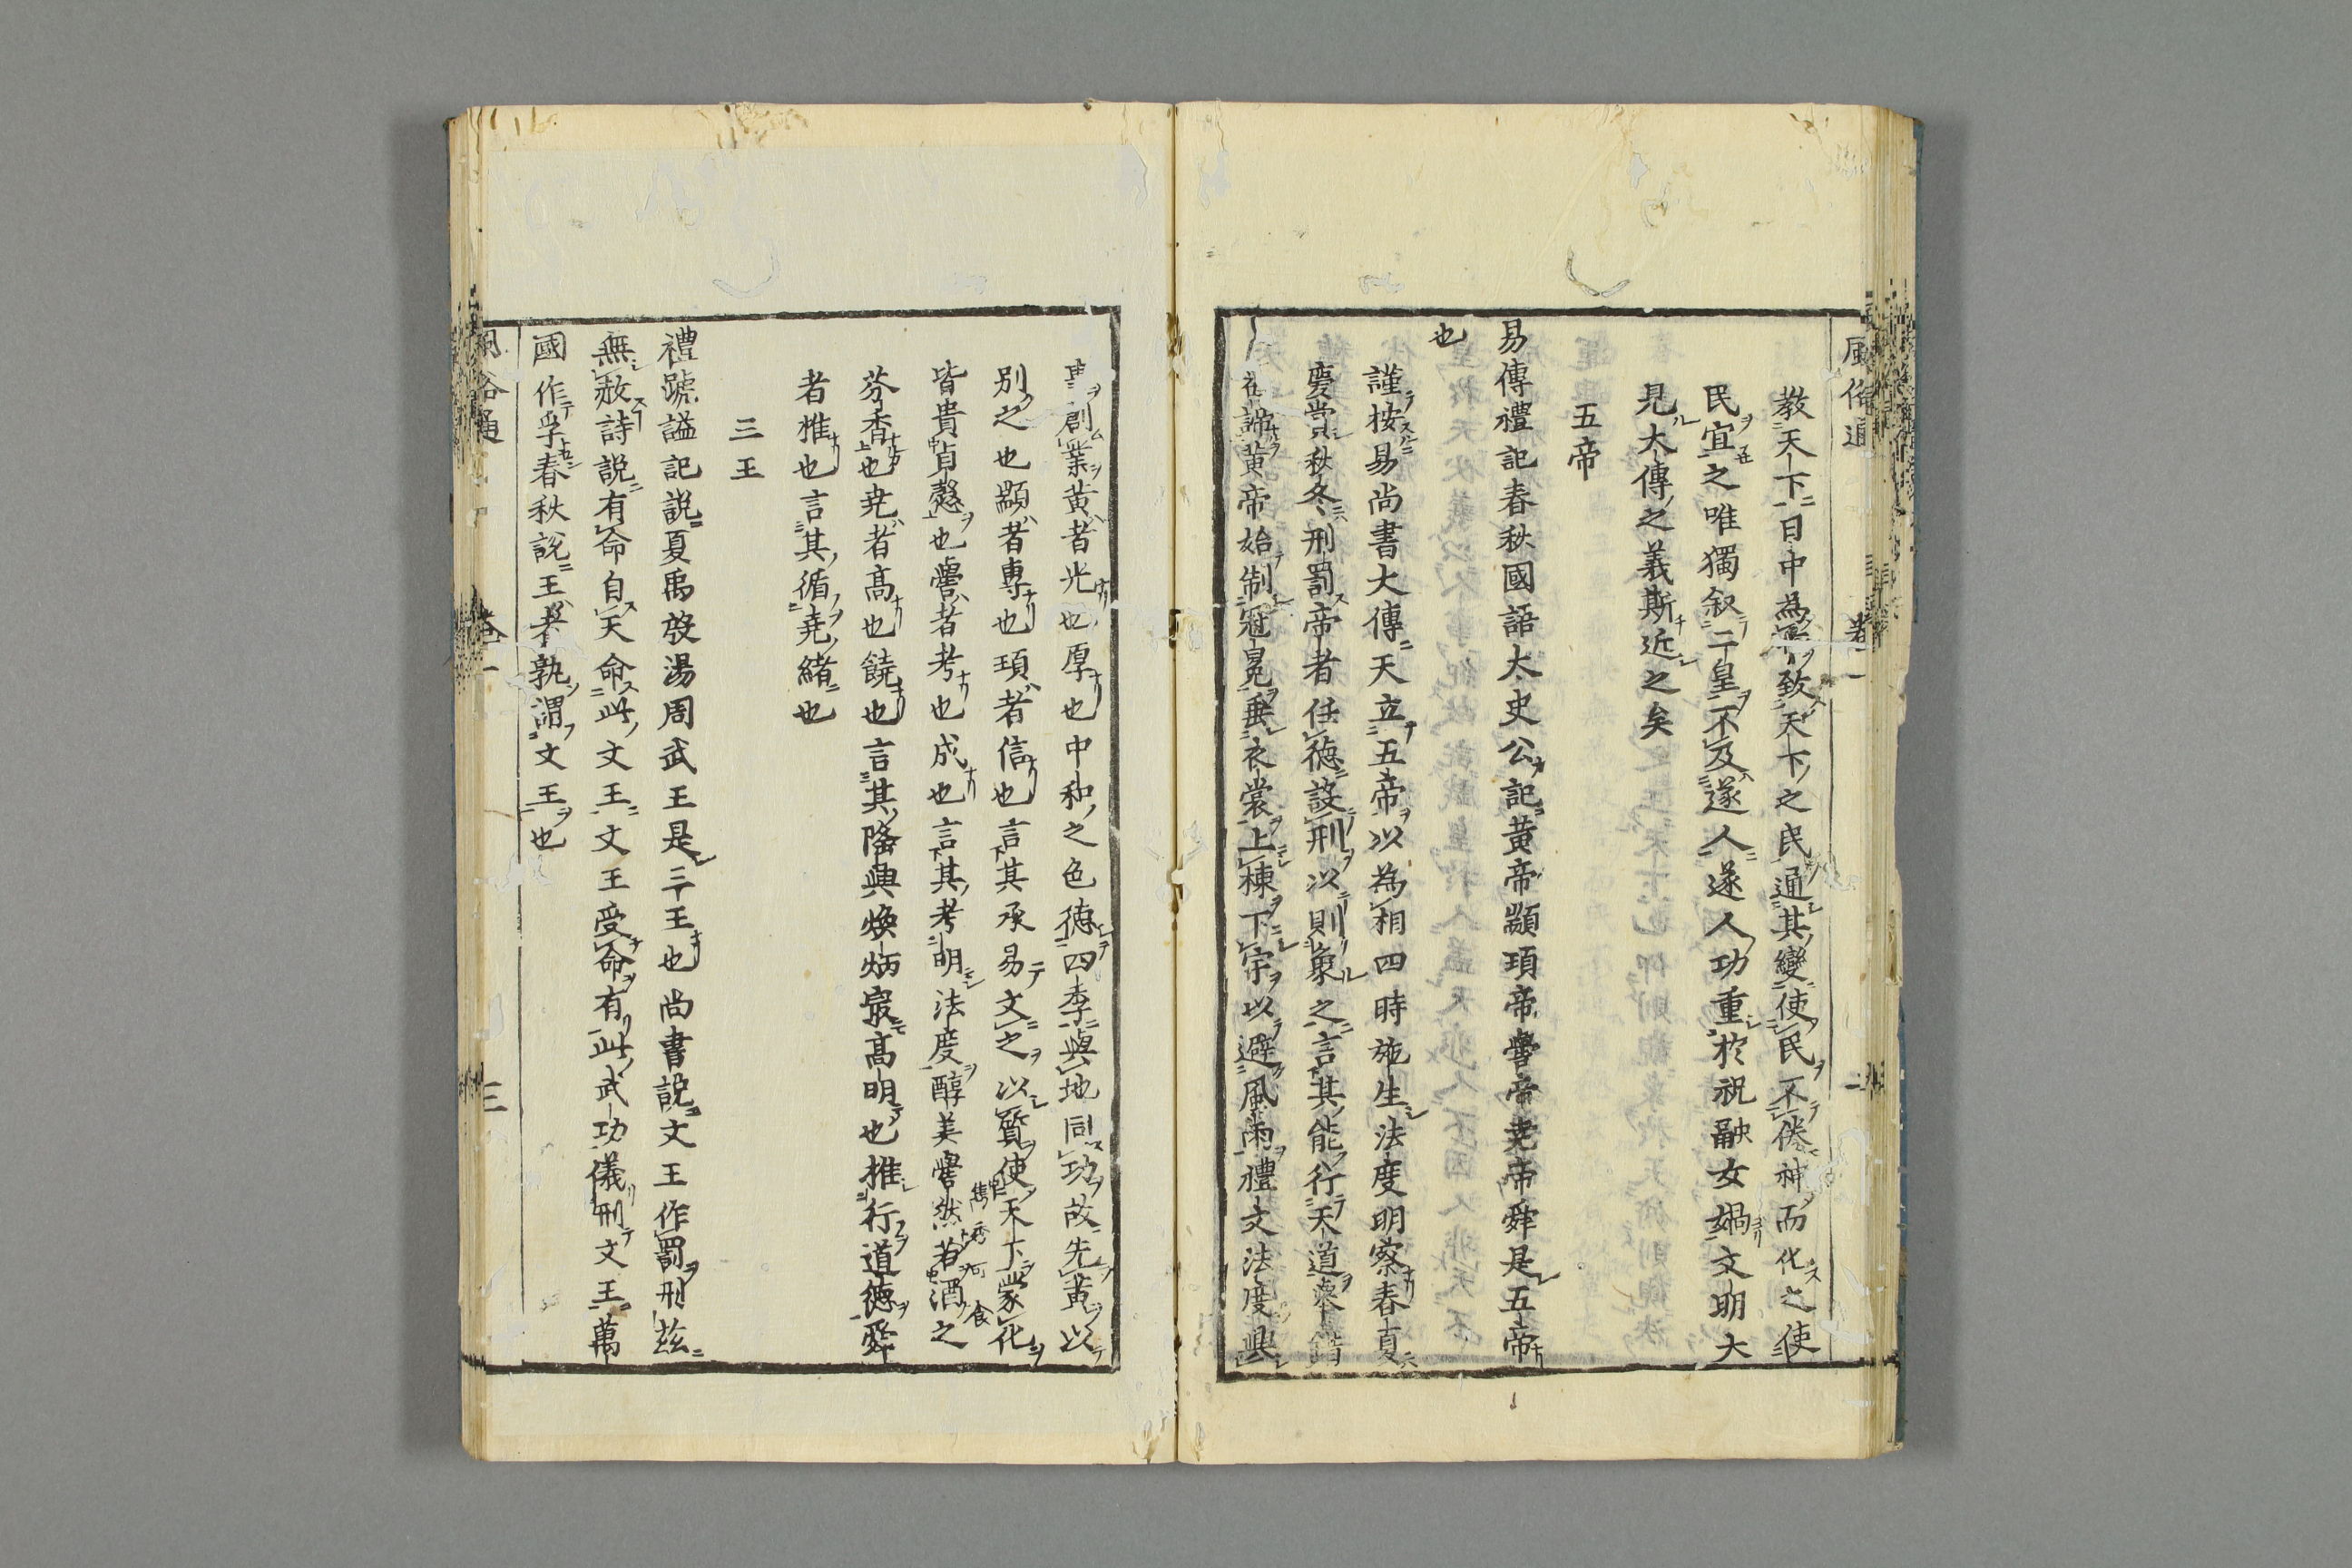 教天下日中為市致天下之民通其變使民不倦神而化之使
民宜之唯獨叙二皇不及遂人遂人功重於祝融女媧文明大
見大傳之義斯近之矣
五帝
易傳禮記春秋國語太史公記黄帝顓頊帝嚳帝尭帝舜是五帝
也
謹按易尚書大傳天立五帝以為相四時施生法度明察春夏
慶賞秋冬刑罰帝者任德設刑以則象之言其能行天道舉錯
諦黄帝始制冠冕垂衣裳上棟下宇以避風雨禮文法度興
創業黄者光也厚也中和之色德四季與地同功故先黄以
別之也顓者專也頊者信也言其承易文之以質使天下蒙化
皆貴貞慤也嚳者考也成也言其考明法度醇美嚳然若酒之
芬香也尭者高也饒也言其隆興煥炳最高明也推行道德舜
者推也言其循堯緒也
三王
禮號謚記説夏禹殷湯周武王是三王也尚書説文王作罰刑玆
無赦詩説有命自天命此文王文王受命有此武功儀刑文王萬
國作孚春秋説王者孰謂文王也
卷一
三